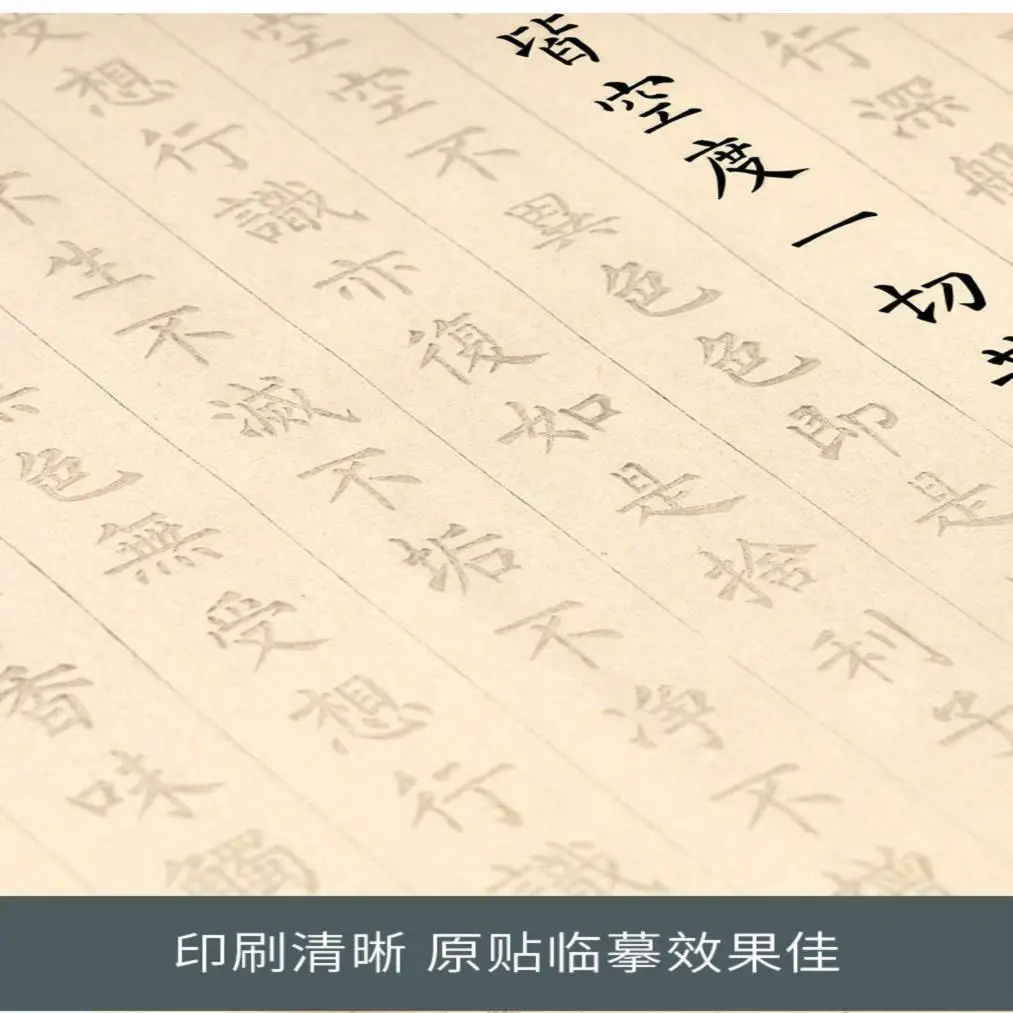 行深般
皆空度一切
空空不異色色即是
受想行識亦復如是捨利子
不生不滅不垢不淨不增
色無受想行識
香味觸
印刷清晰 原贴临摹效果佳